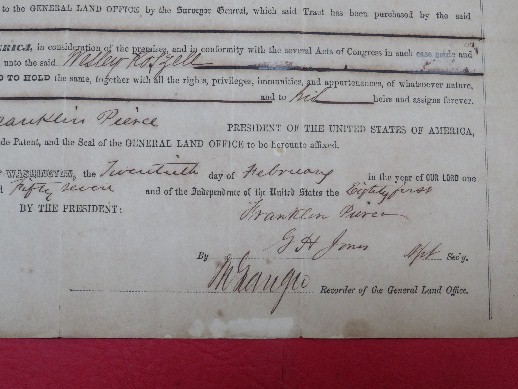 to the GENERAL LAND OFFICE, by the Surveyor General, which said Tract has been purchased by the said
ERICA, in consideration of the premises, and in conformity with the several Acts of Congress in such case made and
unto the said Wesley
D TO HOLD the same, together with all the rights, privileges, immunities, and appurtenances, of whatsoever nature,
and to his heirs and assigns forever.
ranklin Pierce PRESIDENT OF THE UNITED STATES OF AMERICA,
de Patent, and the Seal of the GENERAL LAND OFFICE to be hereunto affixed.
WASHINGTON, the Twentieth day of February in the year of OUR LORD one
d Fifty seven and of the Independence of the United States the Eighty first
BY THE PRESIDENT: Franklin Pierce
By G H Jones Sec'y.
Recorder of the General Land Office.